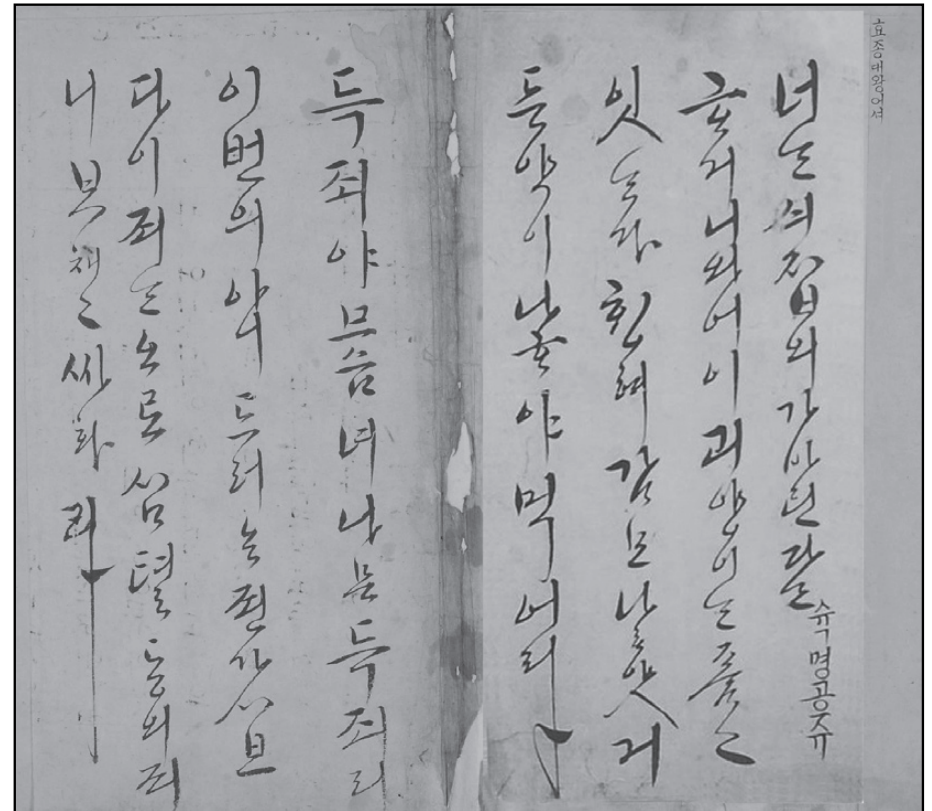 효종대왕어셔
너ᄂᆞᆫ 싀집의 가 바틴다ᄂᆞᆫ
슉명공쥬
ᄒᆞ거니와 어이 괴양이ᄂᆞᆫ 품고
잇ᄂᆞᆫ다 ᄒᆡᆼ혀 감모나 ᄒᆞ얏거
든 약이나 ᄒᆞ야 먹어라
득죄야 므슴 녀나믄 득죄리
이번의 아니 드러온 죈가 시브
다 이 죄ᄂᆞᆫ 오로 심텰동의 죄
니 보채고 싸화라